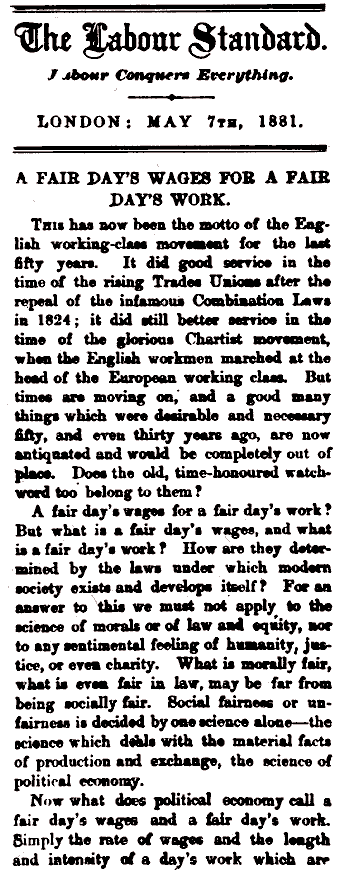 The Labour Standard.
Labour Conquers Everything.
LONDON: MAY 7TH, 1881.
A FAIR DAY'S WAGES FOR A FAIR
DAY'S WORK.
THIS has now been the motto of the Eng-
lish working-class movement for the last
fifty years. It did good service in the
time of the rising Trades Unions after the
repeal of the infamous Combination Laws
in 1824; it did still better service in the
time of the glorious Chartist movement,
when the English workmen marched at the
head of the European working class. But
times are moving on, and a good many
things which were desirable and necessary
fifty, and even thirty years ago, are now
antiquated and would be completely out of
place. Does the old, time-honoured watch-
word too belong to them?
A fair day's wages for a fair day's work?
But what is a fair day's wages, and what
is a fair day's work? How are they deter-
mined by the laws under which modern
society exists and develops itself? For an
answer to this we must not apply to the
science of morals or of law and equity, nor
to any sentimental feeling of humanity, jus-
tice, or even charity. What is morally fair,
what is even fair in law, may be far from
being socially fair. Social fairness or un-
fairness is decided by one science alone—the
science which deals with the material facts
of production and exchange, the science of
political economy.
Now what does political economy call a
fair day's wages and a fair day's work.
Simply the rate of wages and the length
and intensity of a day's work which are